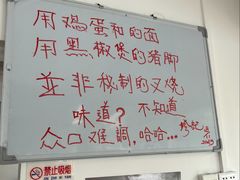 用鸡蛋和的面
用黑椒煲的猪脚
並非秘制的叉烧
味道？不知道
众口难調，哈哈...
禁止吸烟